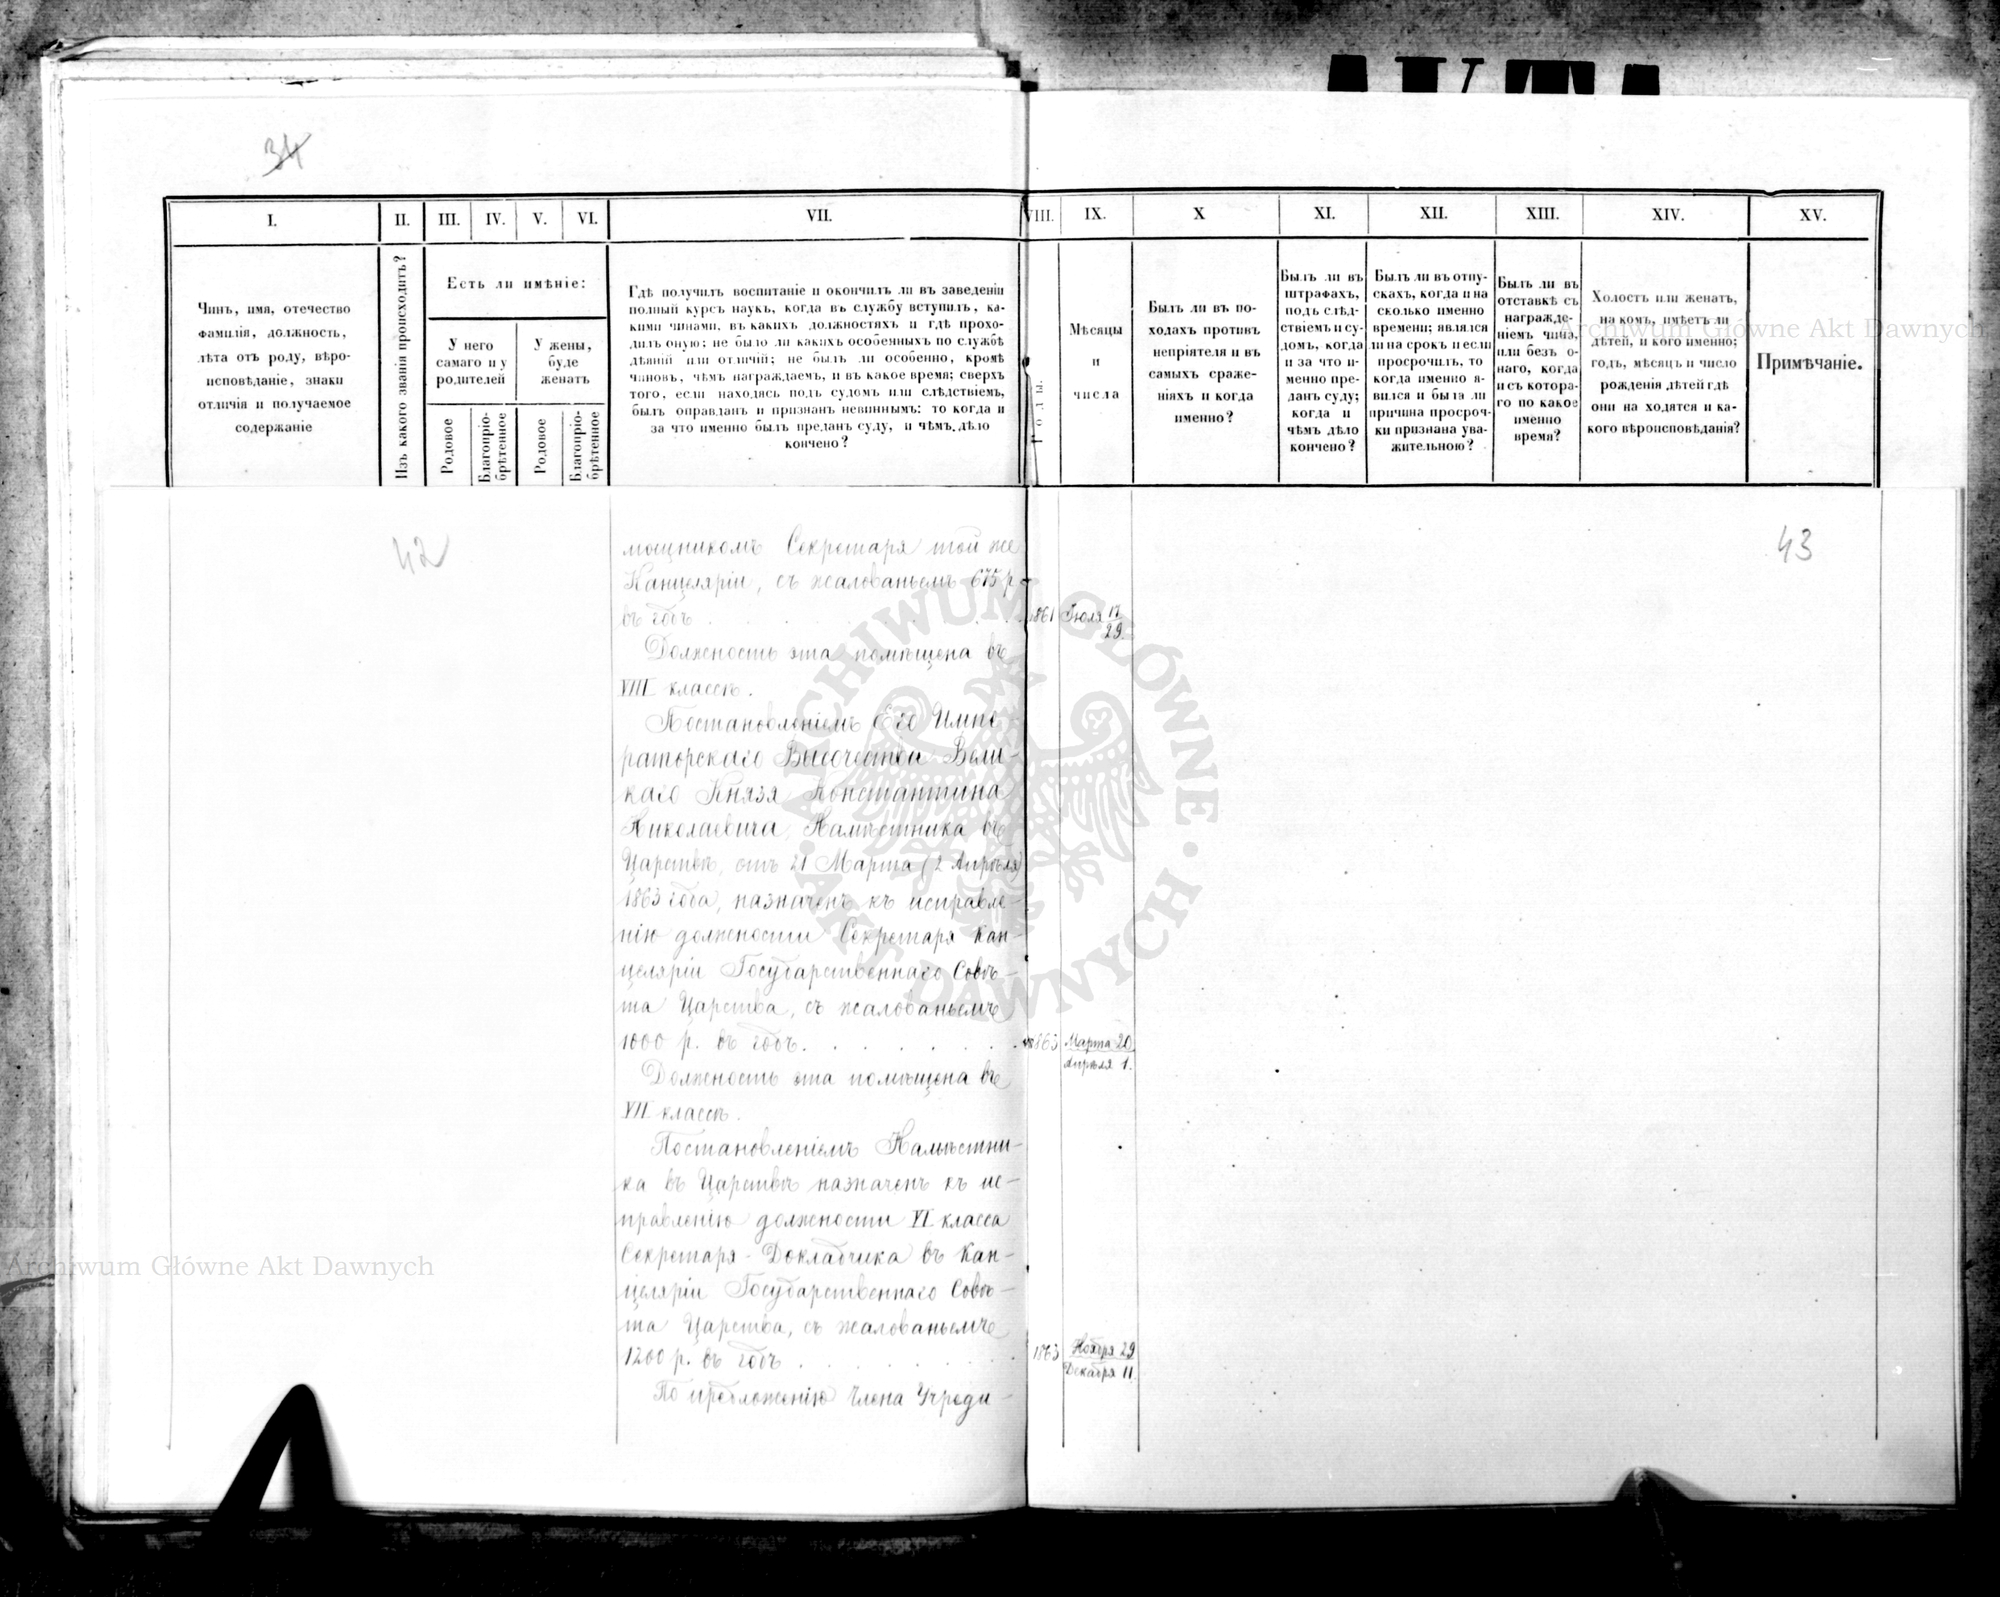 34
I.
II.
III.
IV.
V.
VI.
VII.
VIII.
IX.
X
XI.
XII.
XIII.
XIV.
XV.
Чинъ, имя, отечество
фамилія, должность,
лѣта отъ роду, вѣро-
исповѣданіе, знаки
отличія и получаемое
содержаніе
Изъ какого званія происходитъ?
Есть ли имѣніе:
У него
самаго и у
родителей
У жены,
буде
женатъ
Родовое
Благопріо-
брѣтенное
Родовое
Благопріо-
брѣтенное
Гдѣ получилъ воспитаніе и окончилъ ли въ заведеніи
полный курсъ наукъ, когда въ службу вступилъ, ка-
кими чинами, въ какихъ должностяхъ и гдѣ прохо-
дилъ оную; не было ли какихъ особенныхъ по службѣ
дѣяній или отличій; не былъ ли особенно, кромѣ
чиновъ, чѣмъ награждаемъ, и въ какое время; сверхъ
того, если находясь подъ судомъ или слѣдствіемъ,
былъ оправданъ и признанъ невиннымъ: то когда и
за что именно былъ преданъ суду, и чѣмъ дѣло
кончено?
Годы.
Мѣсяцы
и
числа
Былъ ли въ по-
ходахъ противъ
непріятеля и въ
самыхъ сраже-
ніяхъ и когда
именно?
Былъ ли въ
штрафахъ,
подъ слѣд-
ствіемъ и су-
домъ, когда
и за что и-
менно пре-
данъ суду;
когда и
чѣмъ дѣло
кончено?
Былъ ли въ отпу-
скахъ, когда и на
сколько именно
времени; явился
ли на срокъ и если
просрочилъ, то
когда именно я-
вился и была ли
причина просроч-
ки признана ува-
жительною?
Былъ ли въ
отставкѣ съ
награжде-
ніемъ чина,
или безъ о-
наго, когда
и съ котора-
го по какое
именно
время?
Холостъ или женатъ,
на комъ, имѣетъ ли
дѣтей, и кого именно;
годъ, мѣсяцъ и число
рожденія дѣтей гдѣ
они на ходятся и ка-
кого вѣроисповѣданія?
Примѣчаніе.
42
43
мощникомъ Секретаря той же
Канцеляріи, съ жалованьемъ 675 р
въ годъ . . . . . . . . 1861 Іюля 17/29.
Должность эта помѣщена въ
VIII классѣ.
Постановленіемъ Его Импе-
раторскаго Высочества Вели-
каго Князя Константина
Николаевича, Намѣстника въ
Царствѣ, отъ 21 Марта (2 Апрѣля)
1863 года, назначенъ къ исправле-
нію должности Секретаря Кан-
целяріи Государственнаго Совѣ-
та Царства, съ жалованьемъ
1000 р. въ годъ. . . . . . . 1863 Марта 20
Апрѣля 1.
Должность эта помѣщена въ
VII классѣ.
Постановленіемъ Намѣстни-
ка въ Царствѣ назначенъ къ ис-
правленію должности VI класса
Секретаря-Докладчика въ Кан-
целяріи Государственнаго Совѣ-
та Царства, съ жалованьемъ
1200 р. въ годъ . . . . . . . 1863 Ноября 29
Декабря 11.
По предложенію Члена Учреди-
ARCHIWUM GŁÓWNE AKT DAWNYCH
Archiwum Główne Akt Dawnych
Archiwum Główne Akt Dawnych